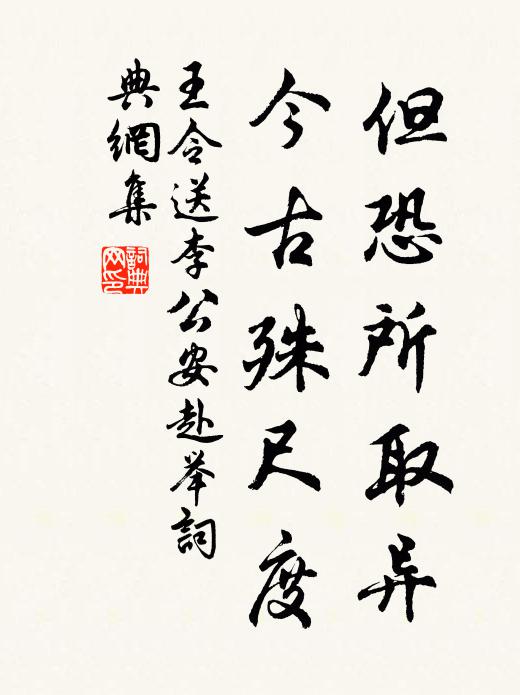 但恐所取异
今古殊尺度
王令送李公安赴举詞
典網集
詞典
网印